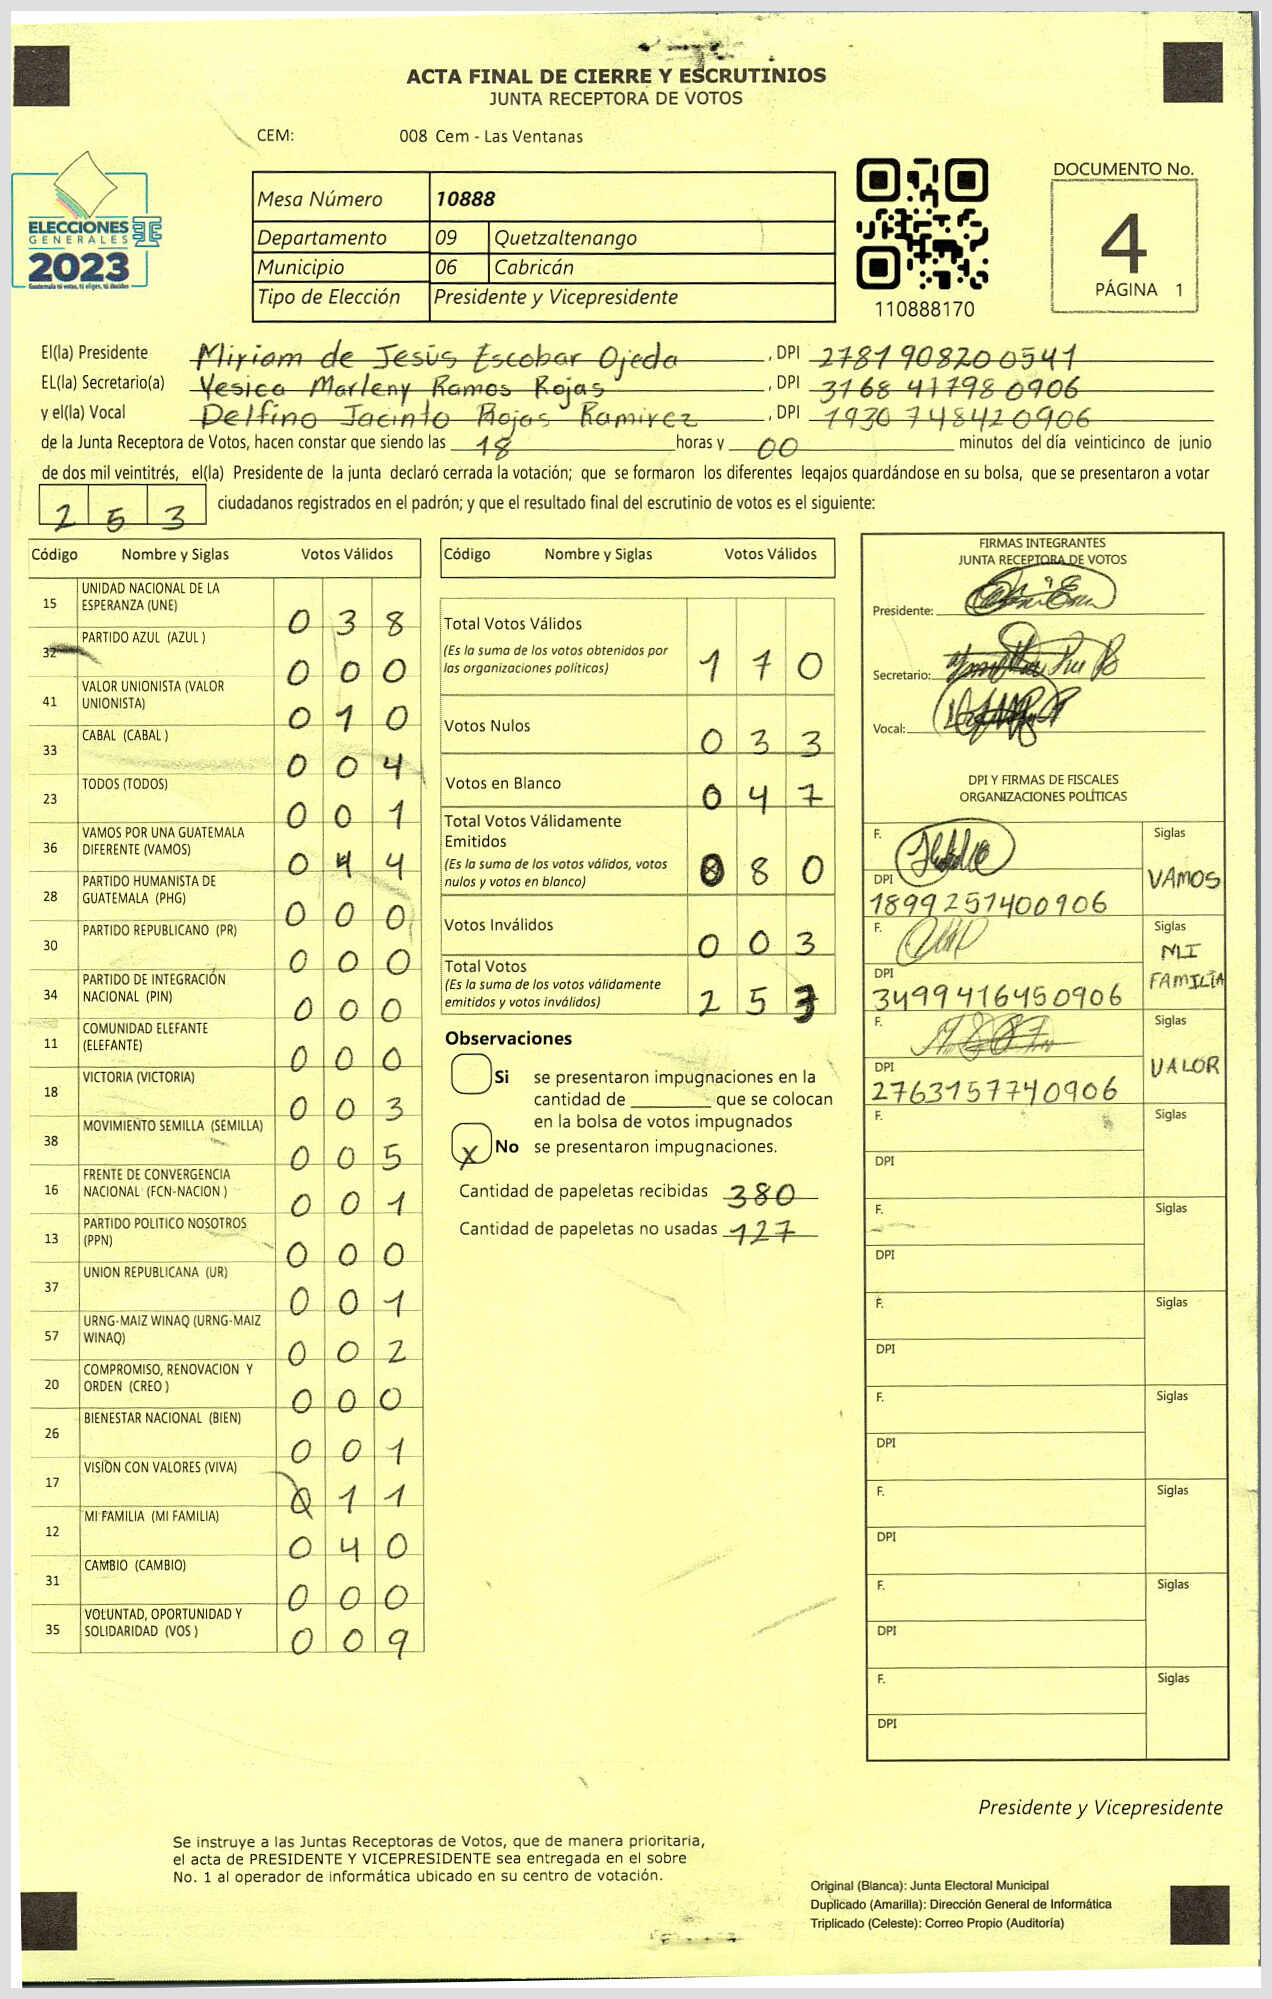 ACTA FINAL DE CIERRE Y ESCRUTINIOS
JUNTA RECEPTORA DE VOTOS
CEM: 008 Cem - Las Ventanas
ELECCIONES
GENERALES
2023
Guatemala tú votas, tú eliges, tú decides
Mesa Número 10888
Departamento 09 Quetzaltenango
Municipio 06 Cabricán
Tipo de Elección Presidente y Vicepresidente
110888170
DOCUMENTO No.
4
PÁGINA 1
El(la) Presidente Miriam de Jesús Escobar Ojeda, DPI 2781908200541
EL(la) Secretario(a) Yesica Marleny Ramos Rojas, DPI 3168417980906
y el(la) Vocal Delfino Jacinto Rojas Ramirez, DPI 1930748420906
de la Junta Receptora de Votos, hacen constar que siendo las 18 horas y 00 minutos del día veinticinco de junio
de dos mil veintitrés, el(la) Presidente de la junta declaró cerrada la votación; que se formaron los diferentes legajos quardándose en su bolsa, que se presentaron a votar
253 ciudadanos registrados en el padrón; y que el resultado final del escrutinio de votos es el siguiente:
Código Nombre y Siglas Votos Válidos
15 UNIDAD NACIONAL DE LA ESPERANZA (UNE) 038
32 PARTIDO AZUL (AZUL ) 000
41 VALOR UNIONISTA (VALOR UNIONISTA) 010
33 CABAL (CABAL ) 004
23 TODOS (TODOS) 001
36 VAMOS POR UNA GUATEMALA DIFERENTE (VAMOS) 044
28 PARTIDO HUMANISTA DE GUATEMALA (PHG) 000
30 PARTIDO REPUBLICANO (PR) 000
34 PARTIDO DE INTEGRACIÓN NACIONAL (PIN) 000
11 COMUNIDAD ELEFANTE (ELEFANTE) 000
18 VICTORIA (VICTORIA) 003
38 MOVIMIENTO SEMILLA (SEMILLA) 005
16 FRENTE DE CONVERGENCIA NACIONAL (FCN-NACION ) 001
13 PARTIDO POLITICO NOSOTROS (PPN) 000
37 UNION REPUBLICANA (UR) 001
57 URNG-MAIZ WINAQ (URNG-MAIZ WINAQ) 002
20 COMPROMISO, RENOVACION Y ORDEN (CREO ) 000
26 BIENESTAR NACIONAL (BIEN) 001
17 VISION CON VALORES (VIVA) 011
12 MI FAMILIA (MI FAMILIA) 040
31 CAMBIO (CAMBIO) 000
35 VOLUNTAD, OPORTUNIDAD Y SOLIDARIDAD (VOS ) 009
Código Nombre y Siglas Votos Válidos
Total Votos Válidos
(Es la suma de los votos obtenidos por
las organizaciones políticas) 170
Votos Nulos 033
Votos en Blanco 047
Total Votos Válidamente
Emitidos
(Es la suma de los votos válidos, votos
nulos y votos en blanco) 080
Votos Inválidos 003
Total Votos
(Es la suma de los votos válidamente
emitidos y votos inválidos) 253
Observaciones
Si se presentaron impugnaciones en la
cantidad de ________ que se colocan
en la bolsa de votos impugnados
X No se presentaron impugnaciones.
Cantidad de papeletas recibidas 380
Cantidad de papeletas no usadas 127
FIRMAS INTEGRANTES
JUNTA RECEPTORA DE VOTOS
Presidente:
Secretario:
Vocal:
DPI Y FIRMAS DE FISCALES
ORGANIZACIONES POLÍTICAS
F. Siglas
VAMOS
DPI
1899257400906
F. Siglas
MI
FAMILIA
DPI
3499416450906
F. Siglas
VALOR
DPI
2763157740906
F. Siglas
DPI
F. Siglas
DPI
F. Siglas
DPI
F. Siglas
DPI
F. Siglas
DPI
F. Siglas
DPI
F. Siglas
DPI
Presidente y Vicepresidente
Se instruye a las Juntas Receptoras de Votos, que de manera prioritaria,
el acta de PRESIDENTE Y VICEPRESIDENTE sea entregada en el sobre
No. 1 al operador de informática ubicado en su centro de votación.
Original (Blanca): Junta Electoral Municipal
Duplicado (Amarilla): Dirección General de Informática
Triplicado (Celeste): Correo Propio (Auditoría)